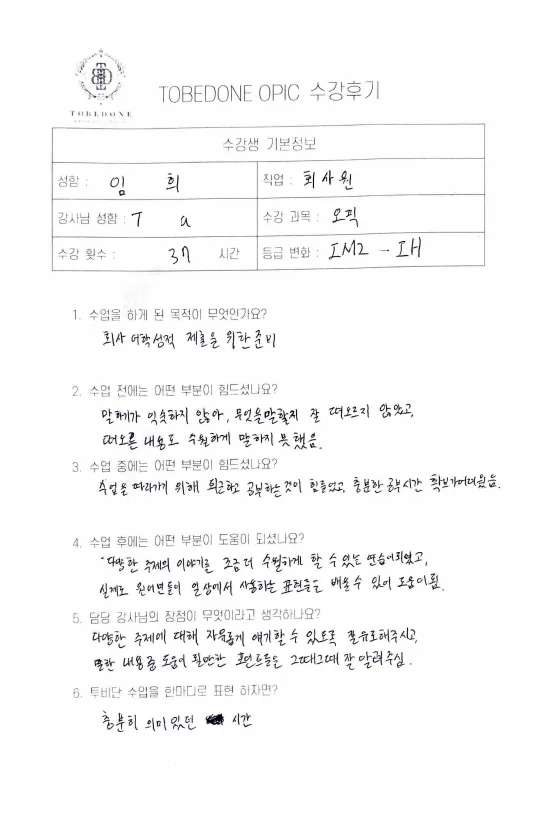 TOBEDONE
TOBEDONE OPIC 수강후기
수강생 기본정보
성함 : 임 희
직업 : 회사원
강사님 성함 : T a
수강 과목 : 오픽
수강 횟수 : 37 시간
등급 변화 : IM2 - IH
1. 수업을 하게 된 목적이 무엇인가요?
회사 어학성적 제출을 위한 준비
2. 수업 전에는 어떤 부분이 힘드셨나요?
말하기가 익숙하지 않아, 무엇을 말할지 잘 떠오르지 않았고,
떠오른 내용도 수월하게 말하지 못했음.
3. 수업 중에는 어떤 부분이 힘드셨나요?
수업을 따라가기 위해 퇴근하고 공부하는것이 힘들었고, 충분한 공부시간 확보가어려웠음.
4. 수업 후에는 어떤 부분이 도움이 되셨나요?
다양한 주제의 이야기를 조금 더 수월하게 할 수 있는 연습이되였고,
실제로 원어민들이 일상에서 사용하는 표현들을 배울 수 있어 도움이됨.
5. 담당 강사님의 장점이 무엇이라고 생각하나요?
다양한 주제에 대해 자유롭게 얘기할 수 있도록 잘 유도해주시고,
말한 내용 중 도움이 될만한 포인트들을 그때그때 잘 알려주심.
6. 투비던 수업을 한마디로 표현 하자면?
충분히 의미있던 시간